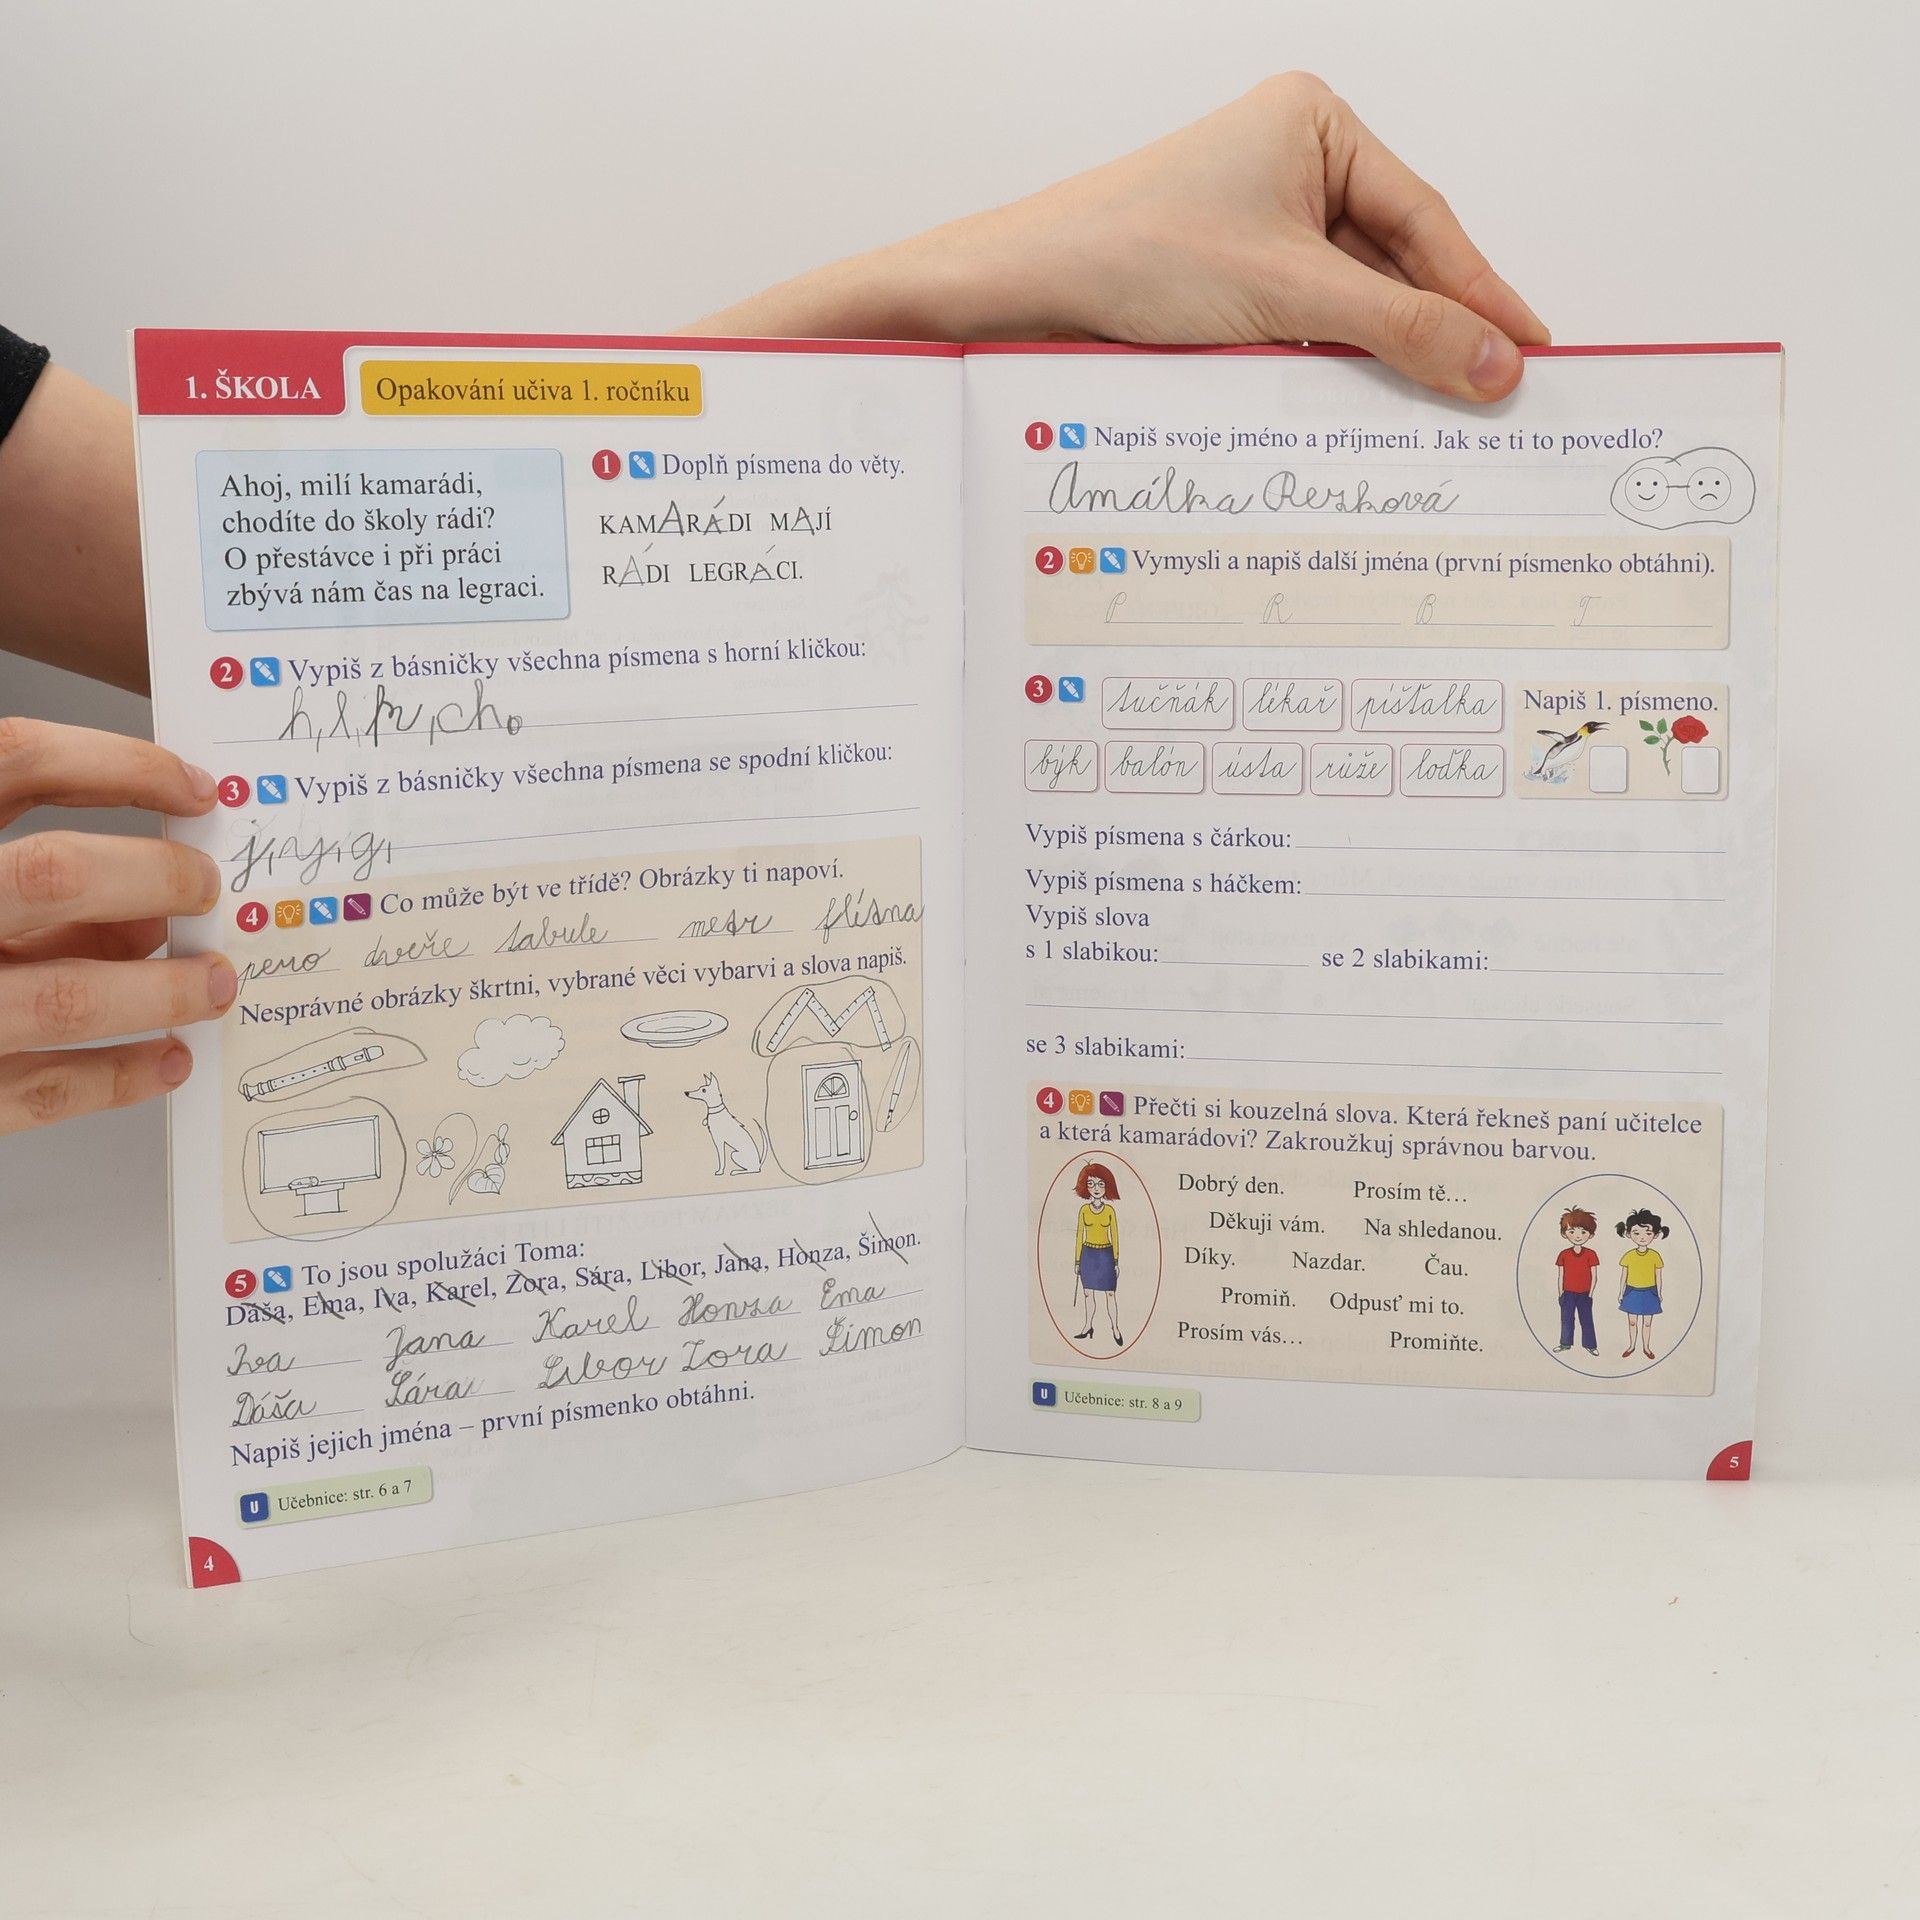 1. ŠKOLA
Opakování učiva 1. ročníku
Ahoj, milí kamarádi,
chodíte do školy rádi?
O přestávce i při práci
zbývá nám čas na legraci.
1 Doplň písmena do věty.
KAMARÁDI MAJÍ
RÁDI LEGRÁCI.
2 Vypiš z básničky všechna písmena s horní kličkou:
h, l, k, ch
3 Vypiš z básničky všechna písmena se spodní kličkou:
j, y, g,
4 Co může být ve třídě? Obrázky ti napoví.
pero dveře tabule metr flétna
Nesprávné obrázky škrtni, vybrané věci vybarvi a slova napiš.
5 To jsou spolužáci Toma:
Dáša, Ema, Iva, Karel, Zora, Sára, Libor, Jana, Honza, Šimon.
Iva Jana Karel Honza Ema
Dáša Sára Libor Zora Šimon
Napiš jejich jména – první písmenko obtáhni.
U Učebnice: str. 6 a 7
4
1 Napiš svoje jméno a příjmení. Jak se ti to povedlo?
Amálka Rezková
2 Vymysli a napiš další jména (první písmenko obtáhni).
P R B T
3 tučňák lékař píšťalka
Napiš 1. písmeno.
býk balón ústa růže loďka
Vypiš písmena s čárkou:
Vypiš písmena s háčkem:
Vypiš slova
s 1 slabikou: se 2 slabikami:
se 3 slabikami:
4 Přečti si kouzelná slova. Která řekneš paní učitelce
a která kamarádovi? Zakroužkuj správnou barvou.
Dobrý den. Prosím tě…
Děkuji vám. Na shledanou.
Díky. Nazdar. Čau.
Promiň. Odpusť mi to.
Prosím vás… Promiňte.
U Učebnice: str. 8 a 9
5